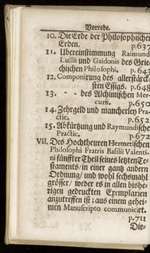 Vorrede.
10. Die Erde der Philosophischen
Erden. p.637
11. Ubereinstimmung Raimundi
Lullii und Guidonis des Grie-
chischen Philosophi. p.643
12. Componirung des allerstärck-
sten Essigs. p.648
13. - - des Alchimischen Mer-
curii. p.650
14. Zehrgeld und mancherley Pra-
ctic. p.652
15. Abkürtzung und Raymundische
Practic. p.672
VII. Des Hochtheuren Hermetischen
Philosophi Fratris Basilii Valenti-
ni fünffter Theil seines letzten Te-
staments/ in einer gantz andern
Ordnung/ und wohl sechsmahl
grösser/ weder es in allen bishe-
rigen gedruckten Exemplarien
anzutreffen ist: aus einem gehei-
men Manuscripto communicirt.
p.711
Die-